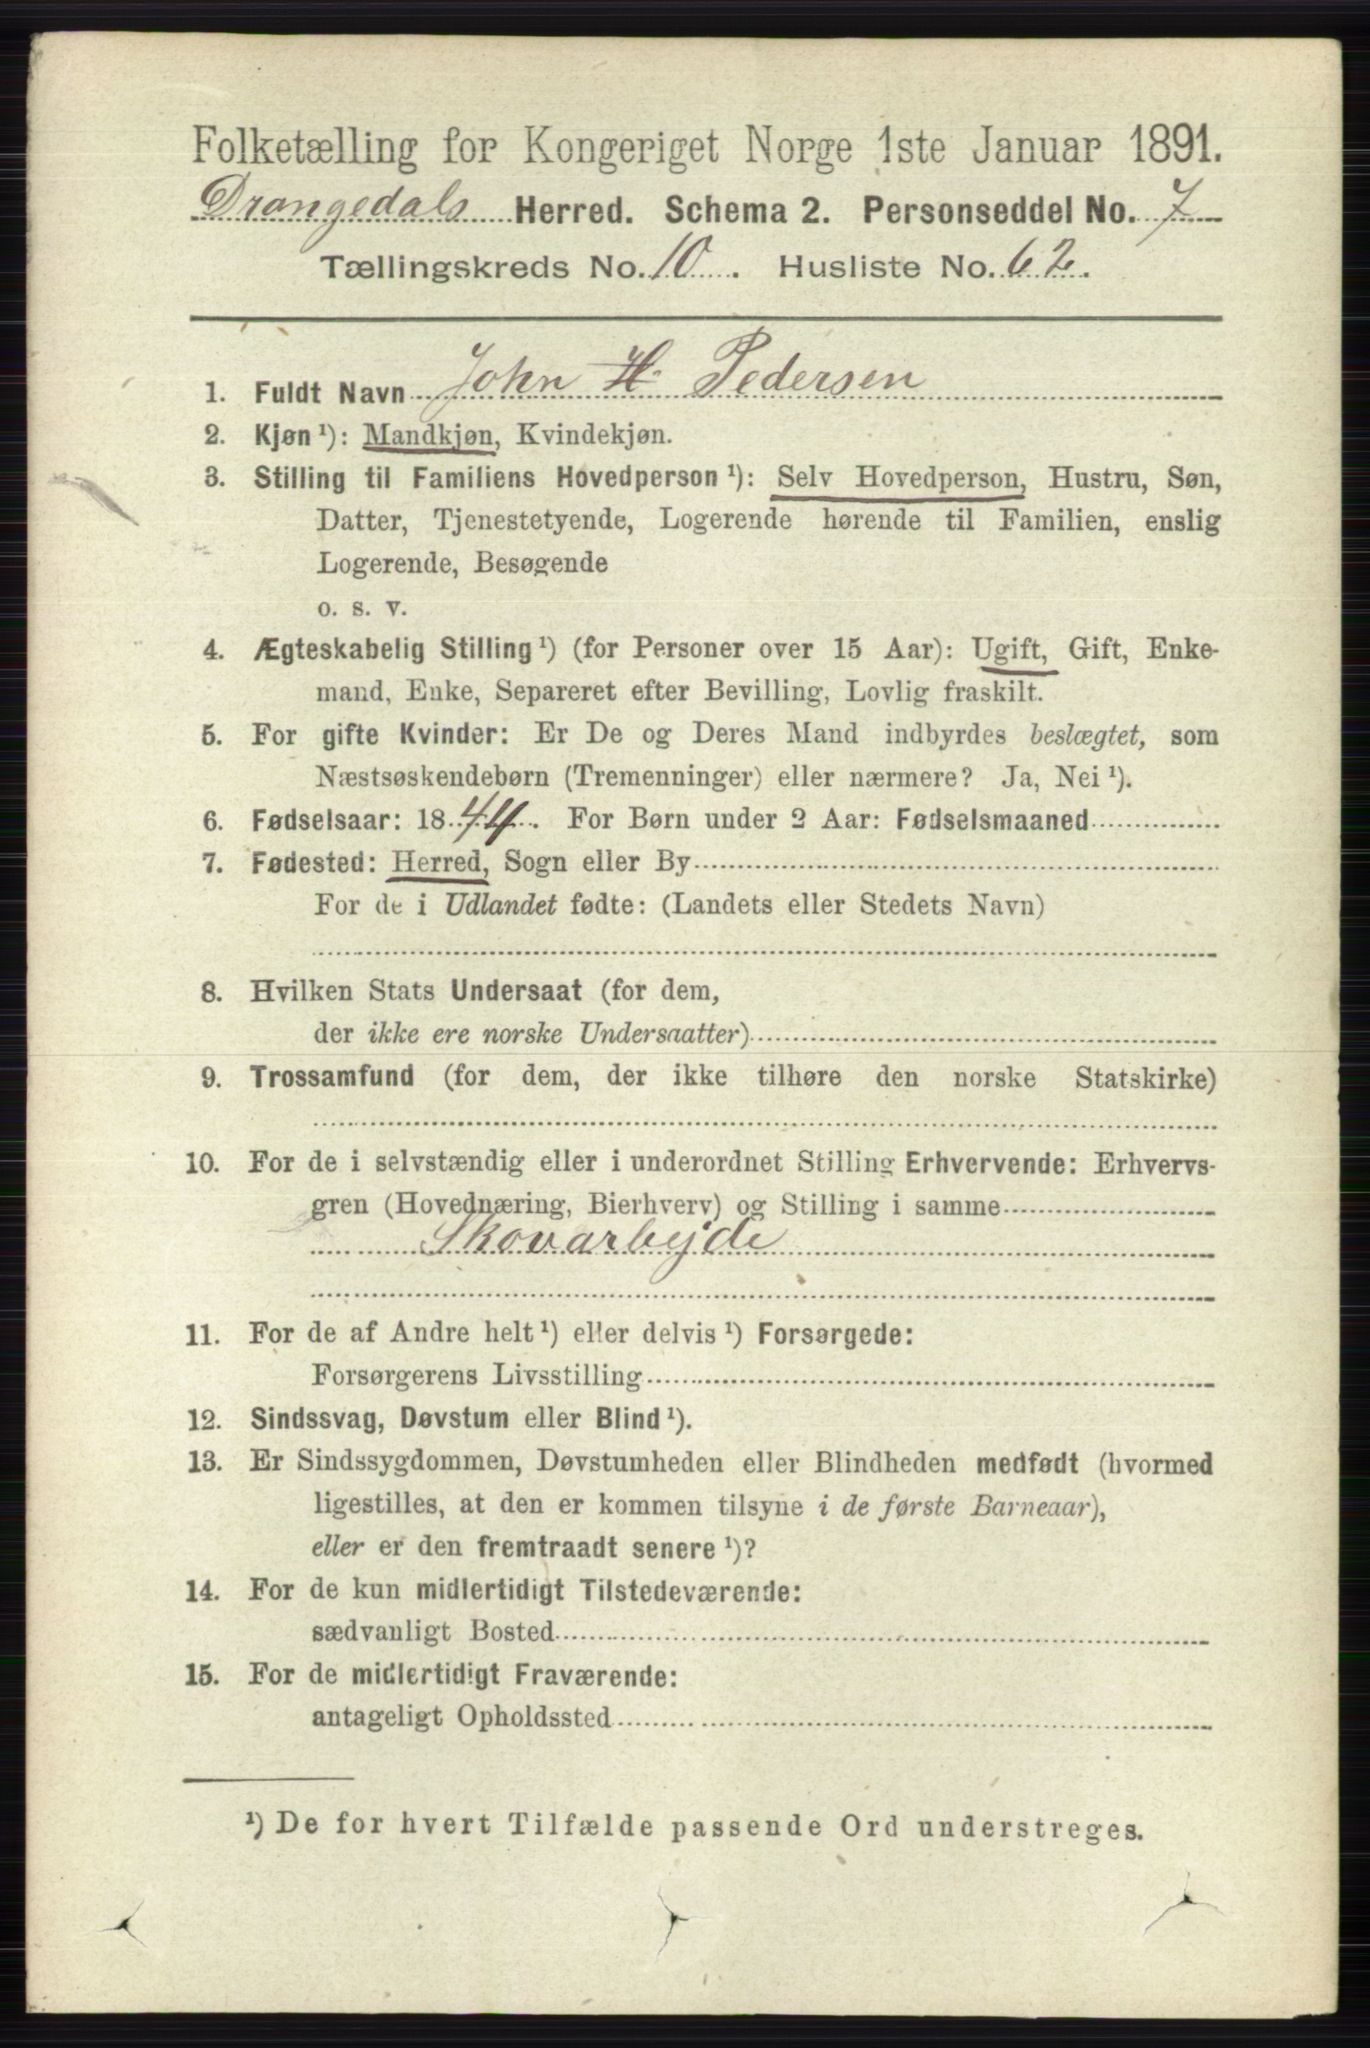 Folketælling for Kongeriget Norge 1ste Januar 1891.
Drangedals Herred. Schema 2. Personseddel No. 7
Tællingskreds No. 10. Husliste No. 62.
1. Fuldt Navn John H. Pedersen
2. Kjøn ¹): Mandkjøn, Kvindekjøn.
3. Stilling til Familiens Hovedperson ¹): Selv Hovedperson, Hustru, Søn,
Datter, Tjenestetyende, Logerende hørende til Familien, enslig
Logerende, Besøgende
o. s. v.
4. Ægteskabelig Stilling ¹) (for Personer over 15 Aar): Ugift, Gift, Enke-
mand, Enke, Separeret efter Bevilling, Lovlig fraskilt.
5. For gifte Kvinder: Er De og Deres Mand indbyrdes beslægtet, som
Næstsøskendebørn (Tremenninger) eller nærmere? Ja, Nei ¹).
6. Fødselsaar: 1844. For Børn under 2 Aar: Fødselsmaaned
7. Fødested: Herred, Sogn eller By
For de i Udlandet fødte: (Landets eller Stedets Navn)
8. Hvilken Stats Undersaat (for dem,
der ikke ere norske Undersaatter)
9. Trossamfund (for dem, der ikke tilhøre den norske Statskirke)
10. For de i selvstændig eller i underordnet Stilling Erhvervende: Erhvervs-
gren (Hovednæring, Bierhverv) og Stilling i samme
Skovarbejde
11. For de af Andre helt ¹) eller delvis ¹) Forsørgede:
Forsørgerens Livsstilling
12. Sindssvag, Døvstum eller Blind ¹).
13. Er Sindssygdommen, Døvstumheden eller Blindheden medfødt (hvormed
ligestilles, at den er kommen tilsyne i de første Barneaar),
eller er den fremtraadt senere ¹)?
14. For de kun midlertidigt Tilstedeværende:
sædvanligt Bosted
15. For de midlertidigt Fraværende:
antageligt Opholdssted
¹) De for hvert Tilfælde passende Ord understreges.